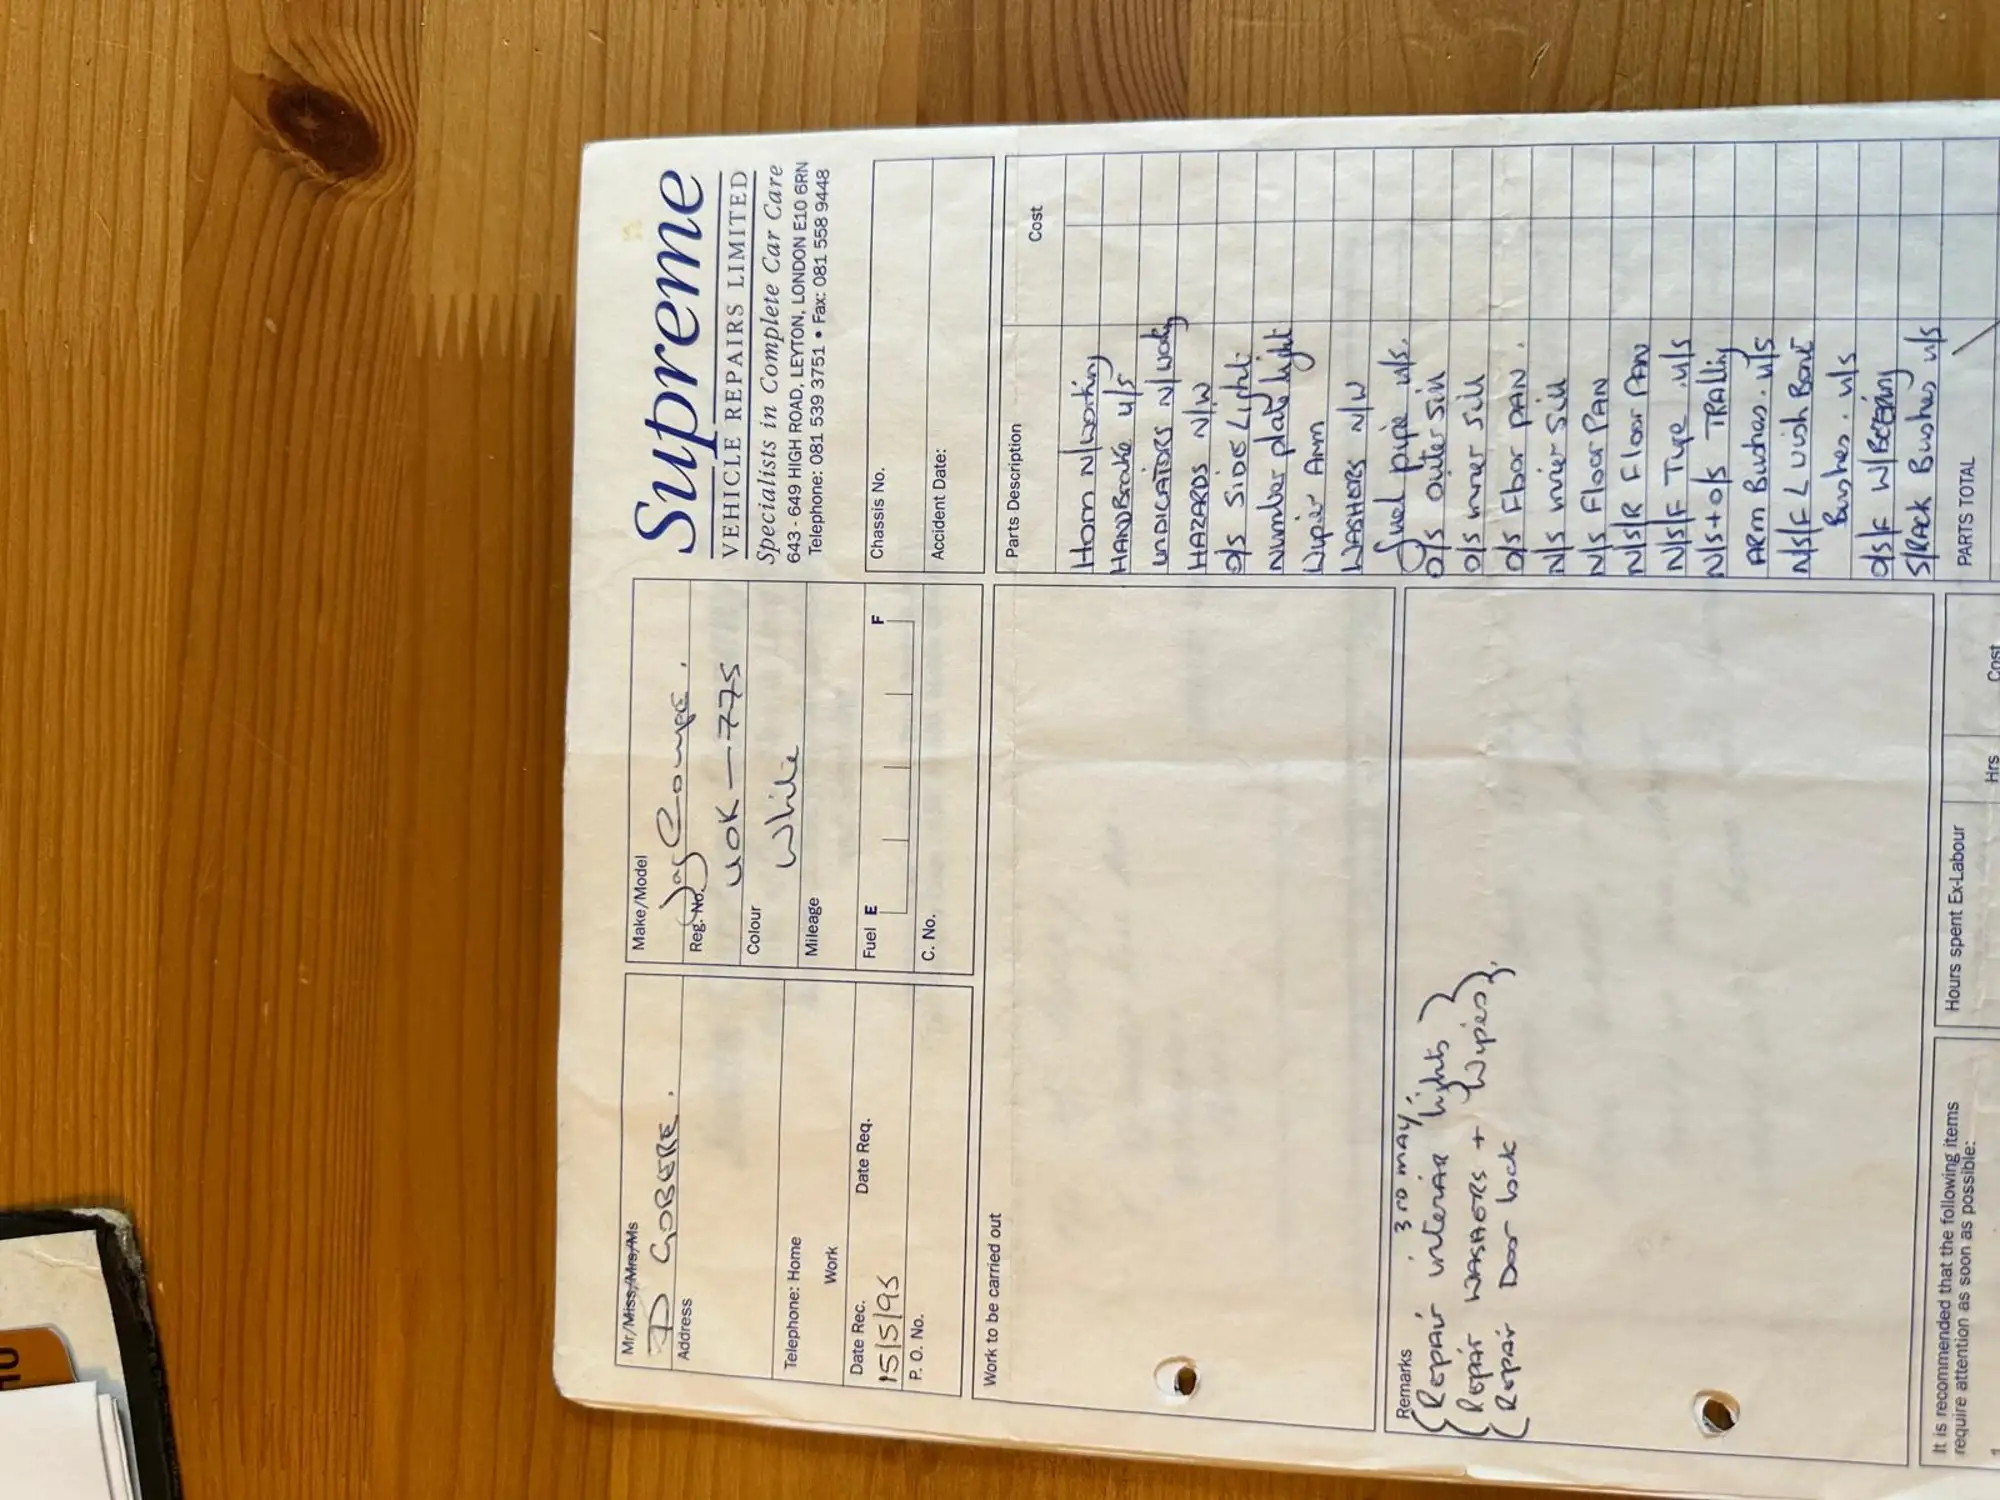 Supreme
VEHICLE REPAIRS LIMITED
Specialists in Complete Car Care
643 - 649 HIGH ROAD, LEYTON, LONDON E10 6RN
Telephone: 081 539 3751 • Fax: 081 558 9448
Mr/Miss/Mrs/Ms
D GOBERE.
Address
Telephone: Home
Work
Date Rec. Date Req.
15/5/95
P. O. No.
Make/Model
Jag Coupe.
Reg. No.
UOK-775
Colour
White
Mileage
Fuel E F
C. No.
Chassis No.
Accident Date:
Work to be carried out
Remarks 3RD MAY
Repair interiar lights
Repair WASHERS + Wipers
Repair Door lock
Parts Description Cost
Horn N/working
HANDBrake U/S
INDICATORS N/workg
HAZARDS N/W
O/S SIDE Light
Number plate light
Wiper Arm
WASHERS N/W
Fuel pipe u/s.
O/S outer Sill
O/S inner Sill
O/S Floor PAN.
N/S inner Sill
N/S Floor PAN
N/S/R Floor PAN
N/S/F Tyre. U/S
N/S+O/S TRAlling
ARM Bushes. u/S
N/S/F L wish Bone
Bushes. u/s
O/S/F W/BEARing
S/RACK Bushes u/s
PARTS TOTAL
It is recommended that the following items
require attention as soon as possible:
1
Hours spent Ex-Labour
Hrs Cost